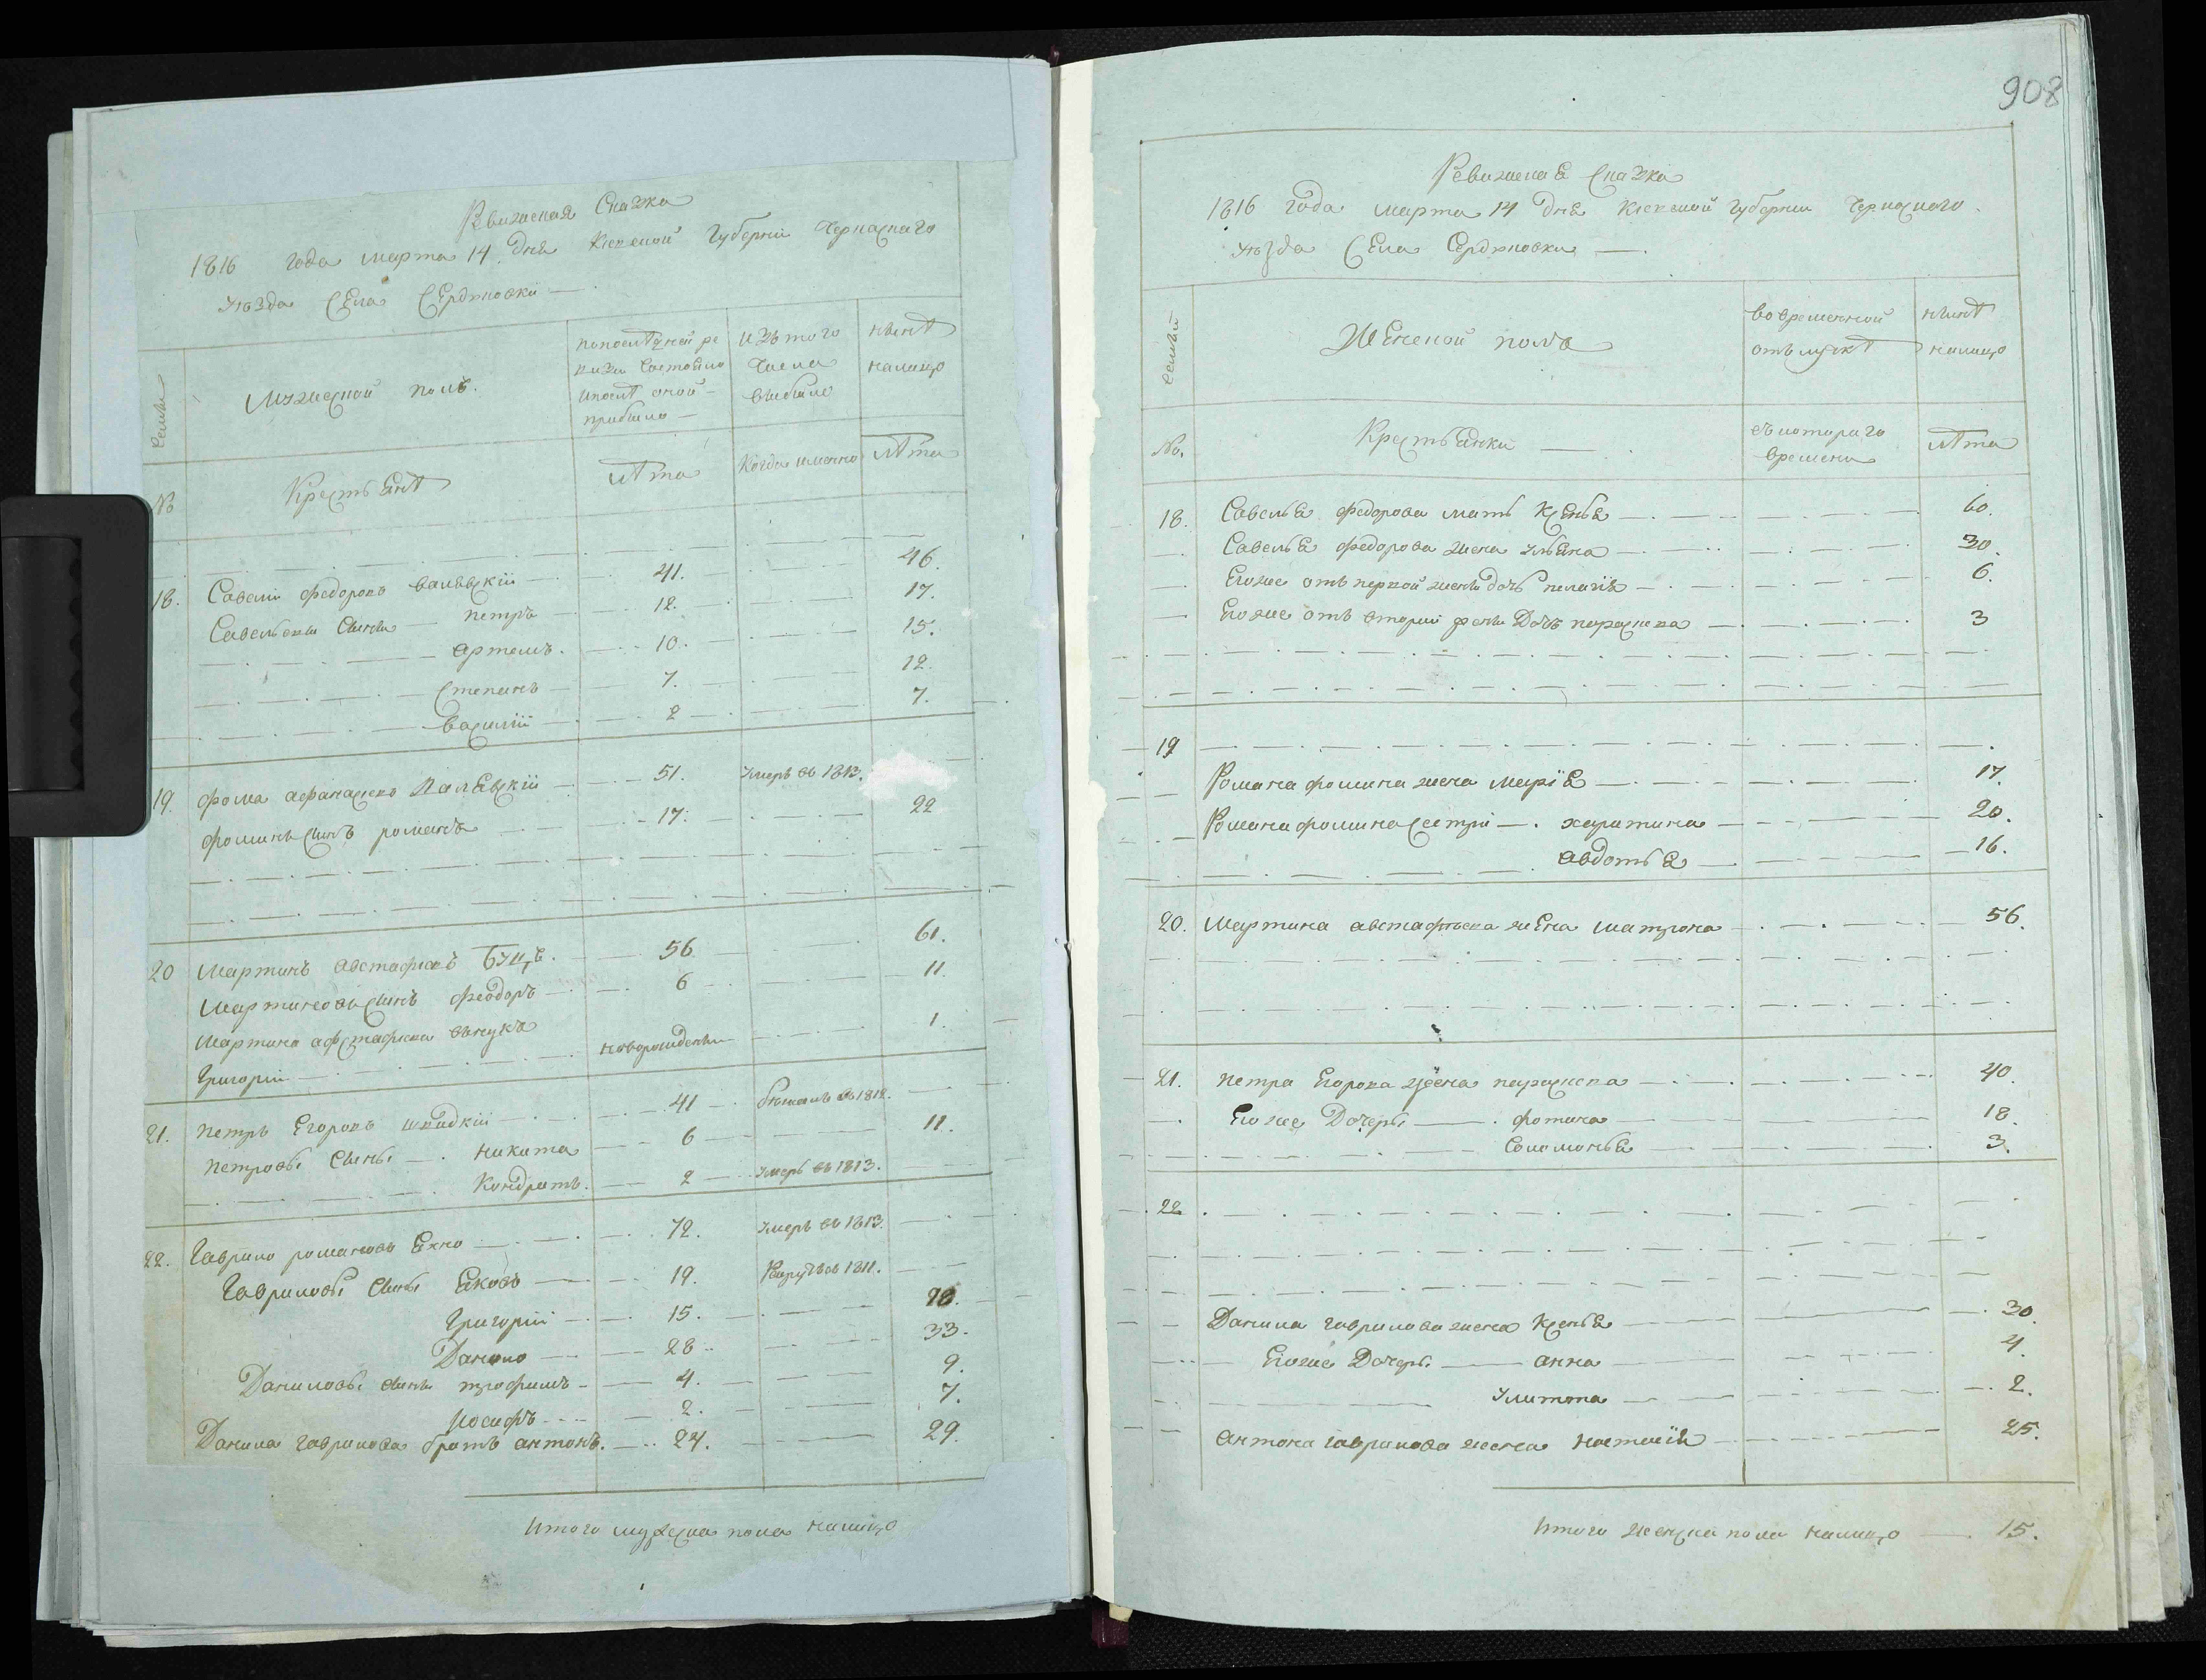 Ревижская Сказка
1816 года марта 14 дня Киевской губерніи Черкаскаго
уезда Села Сердюковки
Семьи
Мужеской полъ.
попоследней ре
визии Состояло
ипосле оной
прибыло
изътого
числа
выбыло
ныне
налицо
№
Крестьяне
лета
Когда именно
лета
18. Савелий федоровъ 41. 46.
Савельевы Сыны Петръ 12. 17.
Артемъ. 10. 15.
Степанъ 7. 12.
Василий 2 7.
19. фома афанасиевъ 51. Умеръ въ 1813.
фоминъ Сынъ романъ 17. 22
20 Мартинъ Австафиевъ Буцъ. 56 61.
Мартиновъ Сынъ феодоръ 6 11.
Мартина афстафиева внукъ
Григорий новорожденъ 1.
21. Петръ Егоровъ швидкий 41 бежалъ въ 1812.
Петровы Сыны Никита 6 11.
Кондратъ. 2 Умеръ въ 1813.
22. Гаврило романовъ 72. Умеръ въ 1813.
Гавриловы Сыны Яковъ 19. Рекрутъ въ 1811.
Григорий 15. 20.
Данило 28 33.
Даниловы Сыны трофимъ 4. 9.
Иосифъ 2. 7.
Данила гаврилова братъ антонъ. 24. 29.
Итого мужеска пола налицо
908
Ревижская Сказка
1816 года марта 14 дня Киевской губернии Черкаского
уезда Села Сердюковки
Семьи
Женской полъ
вовременной
отълучке
ныне
налицо
№.
Крестьянки
съкотораго
времени
лета
18. Савелья федорова мать Ксенья 60.
Савелья федорова жена ульяна 30.
Егоже отъ первой жены дочь пелагия 6.
Егоже отъ второй жены Дочь параскева 3
19
Романа фомина жена марія 17.
Романа фомина Сестры харитина 20.
авдотья 16.
20. Мартина австафьева жена матрона 56.
21. Петра Егорова жена параскева 40.
Егоже Дочеры фотина 18.
Соломонья 3.
22
Данила гаврилова жена Ксенья 30.
Егоже Дочеры анна 4.
Улитта 2.
Антона гаврилова жена настасія 25.
Итого женска пола налицо 15.